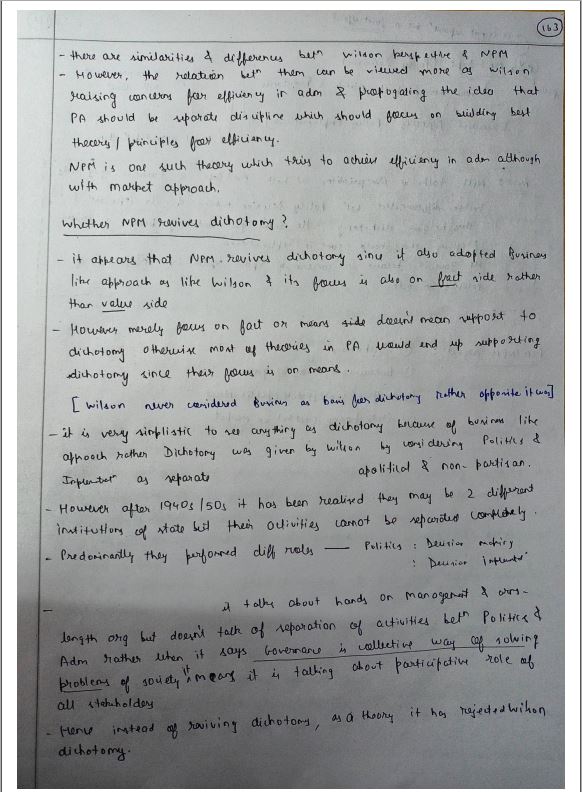 163
- there are similarities & differences betn wilson perspective & NPM
- However, the relation betn them can be viewed more as wilson
raising concerns for efficiency in adm & propogating the idea that
PA should be separate discipline which should focus on building best
theories / principles for efficiency.
NPM is one such theory which tries to achieve efficiency in adm although
with market approach.
Whether NPM revives dichotomy?
- it appears that NPM revives dichotomy since it also adopted Business
like approach as like Wilson & its focus is also on fact side rather
than value side
- However merely focus on fact or means side doesn't mean support to
dichotomy otherwise most of theories in PA would end up supporting
dichotomy since their focus is on means.
[Wilson never considered Business as basis for dichotomy rather opposite it was]
- it is very simplistic to see anything as dichotomy because of business like
approach rather Dichotomy was given by wilson by considering Politics &
as separate apolitical & non-partisan.
- However after 1940s/50s it has been realised they may be 2 different
institutions of state but their activities cannot be separated completely.
- Predominantly they performed diff roles — Politics : Decision making
: Decision
- it talks about hands on management & arms-
length org but doesn't talk of separation of activities betn Politics &
Adm rather when it says Governance is collective way of solving
problems of society it means it is talking about participative role of
all stakeholders
- Hence instead of reviving dichotomy, as a theory it has rejected wilson
dichotomy.